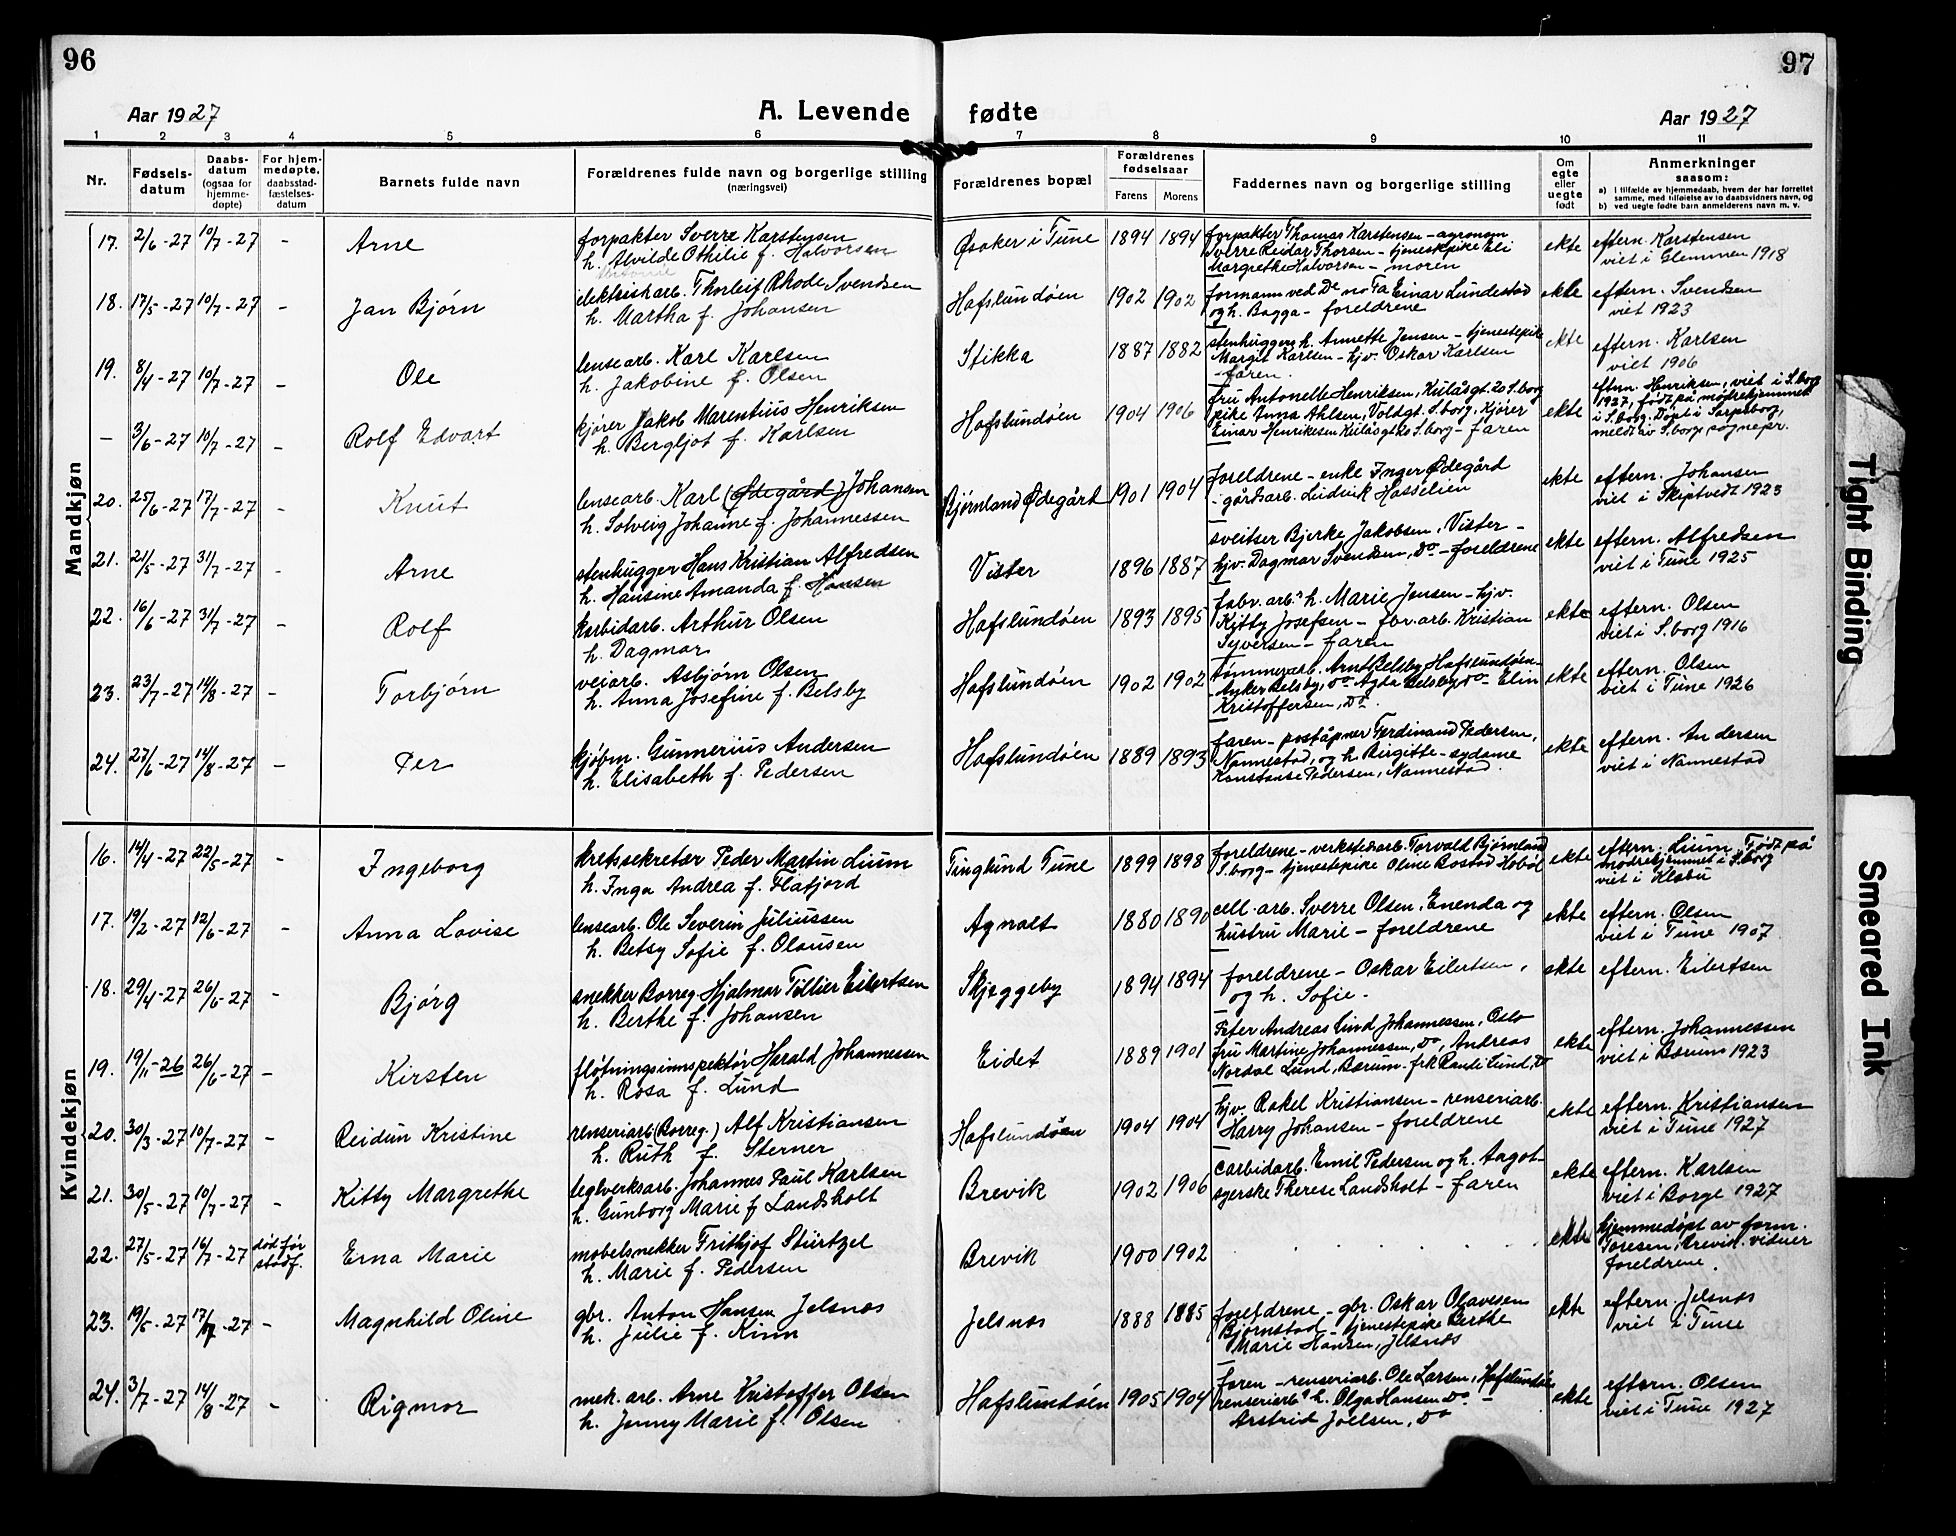 96
97
Aar 1927
A. Levende fødte
Aar 1927
1 2 3 4 5 6 7 8 9 10 11
Nr.
Fødsels-
datum
Daabs-
datum
(ogsaa for
hjemme-
døpte)
For hjem-
medøpte,
daabsstad-
fæstelses-
datum
Barnets fulde navn
Forældrenes fulde navn og borgerlige stilling
(næringsvei)
Forældrenes bopæl
Forældrenes
fødselsaar
Farens Morens
Faddernes navn og borgerlige stilling
Om
egte
eller
uegte
født
Anmerkninger
saasom:
a) i tilfælde av hjemmedaab, hvem der har forrettet
samme, med tilføielse av to daabsvidners navn, og
b) ved uegte fødte barn anmelderens navn m. v.
Mandkjøn
17. 2/6-27 10/7-27 - Arne
forpakter Sverre Karstensen
h. Alvilde Othilie f. Halvorsen
Øsaker i Tune 1894 1894
forpakter Thomas Karstensen - agronom
Sverre Reidar Thorsen - tjenestepike Eli
Margrethe Halvorsen - moren
ekte
eftern. Karstensen
viet i Glemmen 1918
18. 17/5-27 10/7-27 - Jan Bjørn
elektriskarb. Thorleif Rhode Svendsen
h. Martha f. Johansen
Hafslundøen 1902 1902
formann ved De no Fa Einar Lundestad
og h. Bagga - foreldrene
ekte
eftern. Svendsen
viet 1923
19. 8/4-27 10/7-27 - Ole
lensearb. Karl Karlsen
h. Jakobine f. Olsen
Stikka 1887 1882
stenhuggers h. Annette Jensen - tjenestepike
Margit Karlsen - hjv. Oskar Karlsen
- faren.
ekte
eftern. Karlsen
viet 1906
- 3/6-27 10/7-27 - Rolf Edvart
kjører Jakob Marentius Henriksen
h. Bergljot f. Karlsen
Hafslundøen 1904 1906
fru Antonette Henriksen, Kulåsgt. 20 S.borg
pike Anna Ahlsen, Voldgt. S.borg, Kjører
Einar Henriksen Kulåsgt 20 S.borg - faren
ekte
eftern. Henriksen, viet i S.borg
1927, født på mødrehjemmet
i S.borg. Døpt i Sarpsborg,
meldt av S.borgs sognepr.
20. 25/6-27 17/7-27 - Knut
lensearb. Karl (Ødegård) Johansen
h. Solveig Johanne f. Johannessen
Bjørnland Ødegård 1901 1904
foreldrene - enke Inger Ødegård
- gårdsarb. Leidvik Hasselien
ekte
eftern. Johansen
viet i Skiptvedt 1923
21. 21/5-27 31/7-27 - Arne
stenhugger Hans Kristian Alfredsen
h. Hansine Amanda f. Hansen
Vister 1896 1887
sveitser Bjerke Jakobsen, Vister -
hjv. Dagmar Svendsen, do - foreldrene
ekte
eftern. Alfredsen
viet i Tune 1925
22. 16/6-27 31/7-27 - Rolf
karbidarb. Arthur Olsen
h. Dagmar
Hafslundøen 1893 1895
fabr. arb.s h. Marie Jensen - hjv.
Kitty Josefsen - fbr. arb. Kristian
Syversen - faren
ekte
eftern. Olsen
viet i S.borg 1916
23. 23/7-27 14/8-27 - Torbjørn
veiarb. Asbjørn Olsen
h. Anna Josefine f. Belsby
Hafslundøen 1902 1902
tømmerarb. Arnt Belsby Hafslundøen
Anker Belsby, do Agda Belsby do - Elin
Kristoffersen, Do.
ekte
eftern. Olsen
viet i Tune 1926
24. 27/6-27 14/8-27 - Per
kjøbm. Gunnerius Andersen
h. Elisabeth f. Pedersen
Hafslundøen 1889 1893
faren - poståpner Ferdinand Pedersen,
Nannestad, og h. Birgitte - sydame
Konstanse Pedersen, Nannestad.
ekte
eftern. Andersen
viet i Nannestad
Kvindekjøn
16. 14/4-27 22/5-27 - Ingeborg
kretssekretær Peder Martin Lium
h. Inga Andrea f. Flatjord
Tinglund Tune 1899 1898
foreldrene - verkstedarb. Torvald Bjørnland
S.borg - tjenestepike Oline Bostad Hobøl
ekte
eftern. Lium. Født på
mødrehjemmet i S.borg
viet i Klæbu
17. 19/2-27 12/6-27 - Anna Lovise
lensearb. Ole Severin Juliussen
h. Betsy Sofie f. Olausen
Agnalt 1880 1890
cell. arb. Sverre Olsen, Enenda og
hustru Marie - foreldrene
ekte
eftern. Olsen
viet i Tune 1907
18. 29/4-27 26/6-27 - Bjørg
snekker Borreg. Hjalmar Tellier Eilertsen
h. Berthe f. Johansen
Skjeggeby 1894 1894
foreldrene - Oskar Eilertsen,
og h. Sofie.
ekte
eftern. Eilertsen
19. 19/11-26 26/6-27 - Kirsten
fløtningsinnspektør Harald Johannessen
h. Rosa f. Lund
Eidet 1889 1901
Peter Andreas Lund Johannessen, Oslo
fru Martine Johannessen, do, Andreas
Nordal Lund, Bærum - frk Randi Lund, do
ekte
eftern. Johannessen
viet i Bærum 1923
20. 30/3-27 10/7-27 - Reidun Kristine
renseriarb (Borreg.) Alf Kristiansen
h. Ruth f. Sterner
Hafslundøen 1904 1904
hjv. Rakel Kristiansen - renseriarb.
Harry Johansen - foreldrene
ekte
eftern. Kristiansen
viet i Tune 1927
21. 30/5-27 10/7-27 - Kitty Margrethe
teglverksarb. Johannes Paul Karlsen
h. Gunborg Marie f Landsholt
Brevik 1902 1906
carbidarb. Emil Pedersen og h. Aagot -
syerske Therese Landsholt - faren
ekte
eftern. Karlsen
viet i Borge 1927
22. 27/5-27 16/7-27 død før
stadf. Erna Marie
møbelsnekker Frithjof Stürtzel
h. Marie f. Pedersen
Brevik 1900 1902
ekte
hjemmedøpt av form.
Toresen, Brevik. vidner
foreldrene.
23. 19/5-27 17/7-27 - Magnhild Oline
gbr. Anton Hansen Jelsnes
h. Julie f. Kinn
Jelsnes 1888 1885
foreldrene - gbr. Oskar Olavesen
Bjørnstad - tjenestepike Berthe
Marie Hansen, Jelsnes
ekte
eftern. Jelsnes
viet i Tune
24. 3/7-27 14/8-27 - Rigmor
mek. arb. Arne Kristoffer Olsen
h. Jenny Marie f. Olsen
Hafslundøen 1905 1904
faren - renseriarb. Ole Larsen, Hafslundøen
renseriarb.s h. Olga Hansen Do. -
Arstrid Joelsen, Do
ekte
eftern. Olsen
viet i Tune 1927
Tight Binding
Smeared Ink